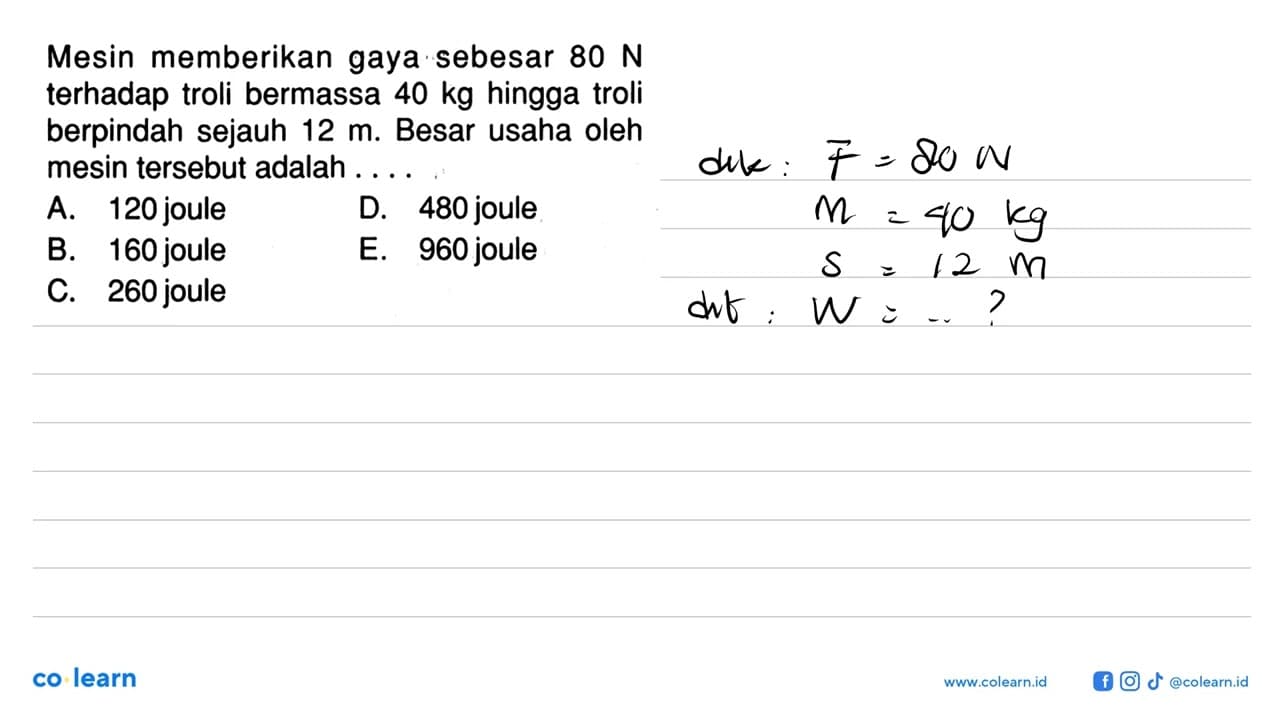 Mesin memberikan gaya sebesar 80 N
terhadap troli bermassa 40 kg hingga troli
berpindah sejauh 12 m. Besar usaha oleh
mesin tersebut adalah . . . .
A. 120 joule D. 480 joule
B. 160 joule E. 960 joule
C. 260 joule
dik : F = 80 N
m = 40 kg
s = 12 m
dit : W = ... ?
co learn
www.colearn.id @colearn.id